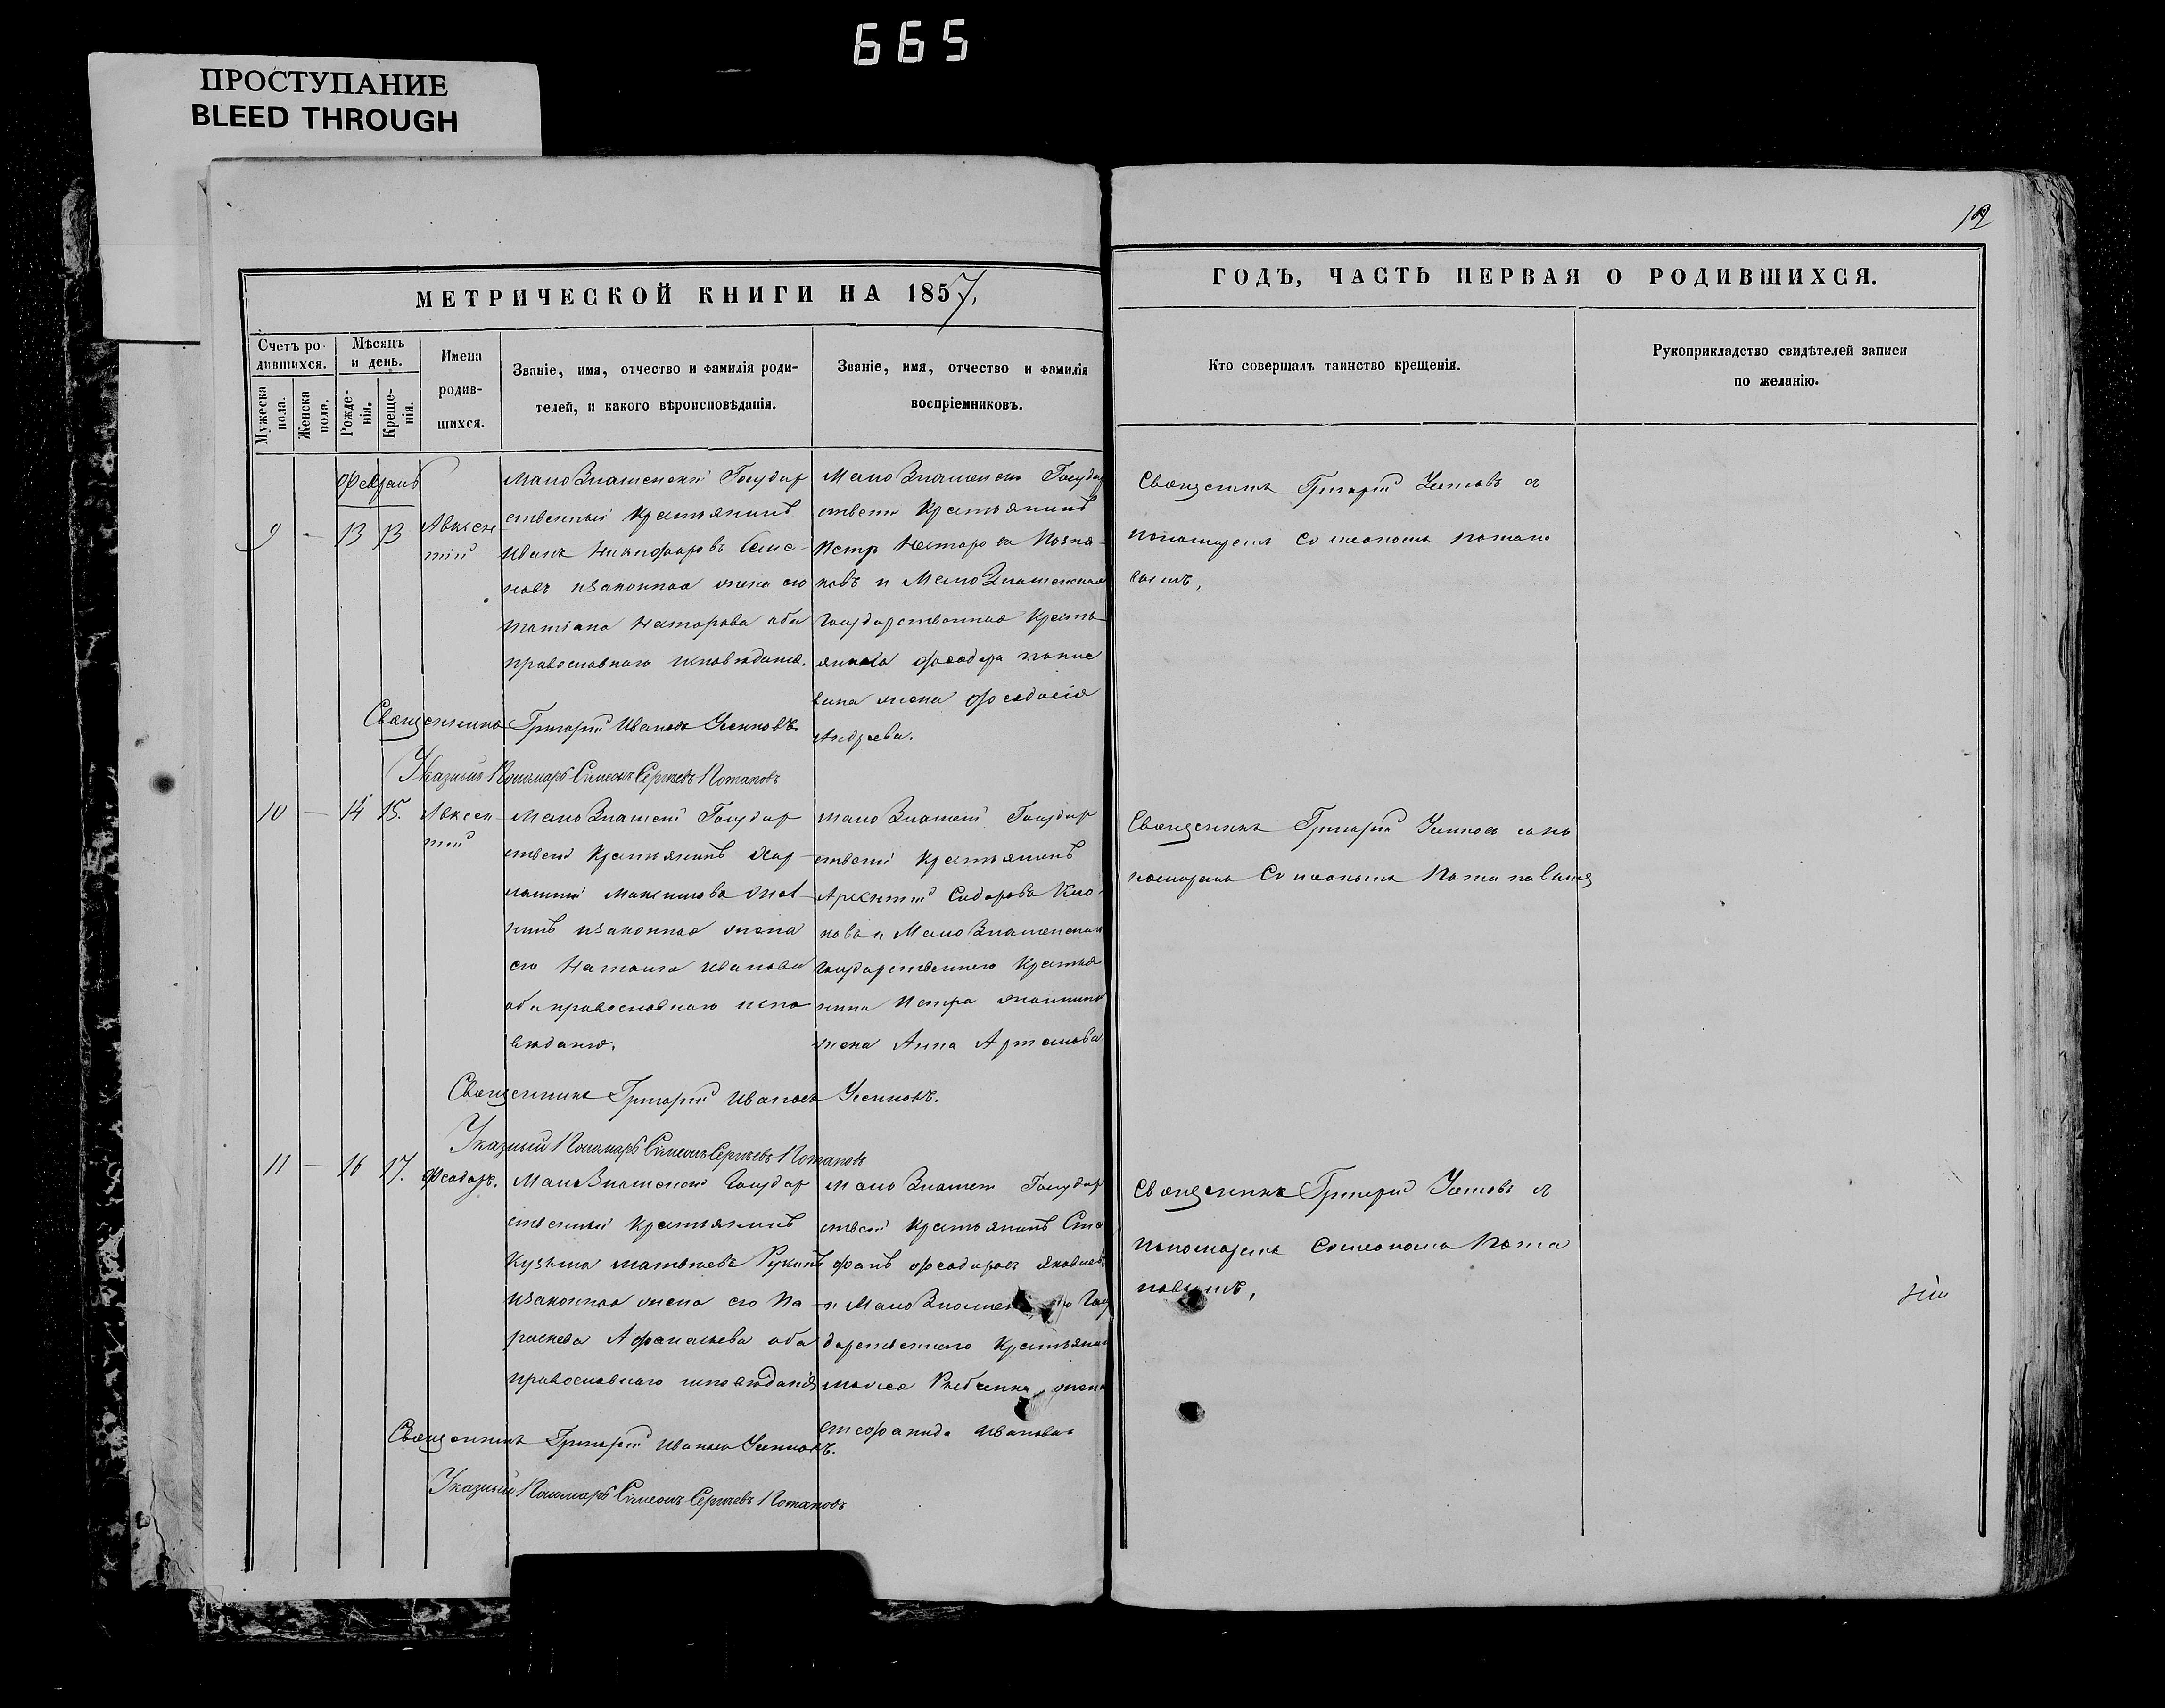 665
ПРОСТУПАНИЕ
BLEED THROUGH
12
МЕТРИЧЕСКОЙ КНИГИ НА 1857,
Счетъ ро-
дившихся.
Мужеска
пола.
Женска
пола.
Мѣсяцъ
и день.
Рожде-
нія.
Креще-
нія.
Имена
родив-
шихся.
Званіе, имя, отчество и фамилія роди-
телей, и какого вѣроисповѣданія.
Званіе, имя, отчество и фамилія
воспріемниковъ.
ГОДЪ, ЧАСТЬ ПЕРВАЯ О РОДИВШИХСЯ.
Кто совершалъ таинство крещенія.
Рукоприкладство свидѣтелей записи
по желанію.
Февраль
9 - 13 13
Авксен
тій
Мало Знаменскій Государ
ственный Крестьянинъ
Иванъ Никифоровъ
изаконная жена его
Татіана Несторова оба
православнаго
Мало Знаменскій Государ
ственный Крестьянинъ
Петръ Несторовъ
и Мало Знаменская
Государственнаго Кресть
янина Феодора
жена Феодосія
Андреева.
Священникъ Григорій
пономаремъ Симеономъ Потапо
вымъ,
Священникъ Григорій Ивановъ
Указный Пономарь Симеонъ Сергѣевъ Потаповъ
10 — 14 15.
Авксен
тій
Мало Знаменскій Государ
ственный Крестьянинъ Хар
лампій Максимовъ
изаконная жена
его Наталія Иванова
оба православнаго испо
вѣданія.
Мало Знаменскій Государ
ственный Крестьянинъ
Арсентій Сидоровъ
и Мало Знаменскаго
Государственнаго Крестья
нина Петра
жена Анна Артемова
Священникъ Григорій
Симеономъ Потаповымъ
Священникъ Григорій Ивановъ
Указный Пономарь Симеонъ Сергѣевъ Потаповъ
11 — 16 17.
Феодоръ.
Мало Знаменскій Государ
ственный Крестьянинъ
Кузьма Матвѣевъ
изаконная жена его Па
раскева Афанасьева оба
православнаго исповѣданія
Мало Знаменскій Государ
ственный Крестьянинъ Сте
фанъ Феодоровъ Яковлевъ
и Мало Знаменскаго Госу
дарственнаго Крестьянина
жена
Стефанида Иванова
Священникъ Григорій
пономаремъ Симеономъ Пота
повымъ,
Священникъ Григорій Ивановъ
Указный Пономарь Симеонъ Сергѣевъ Потаповъ